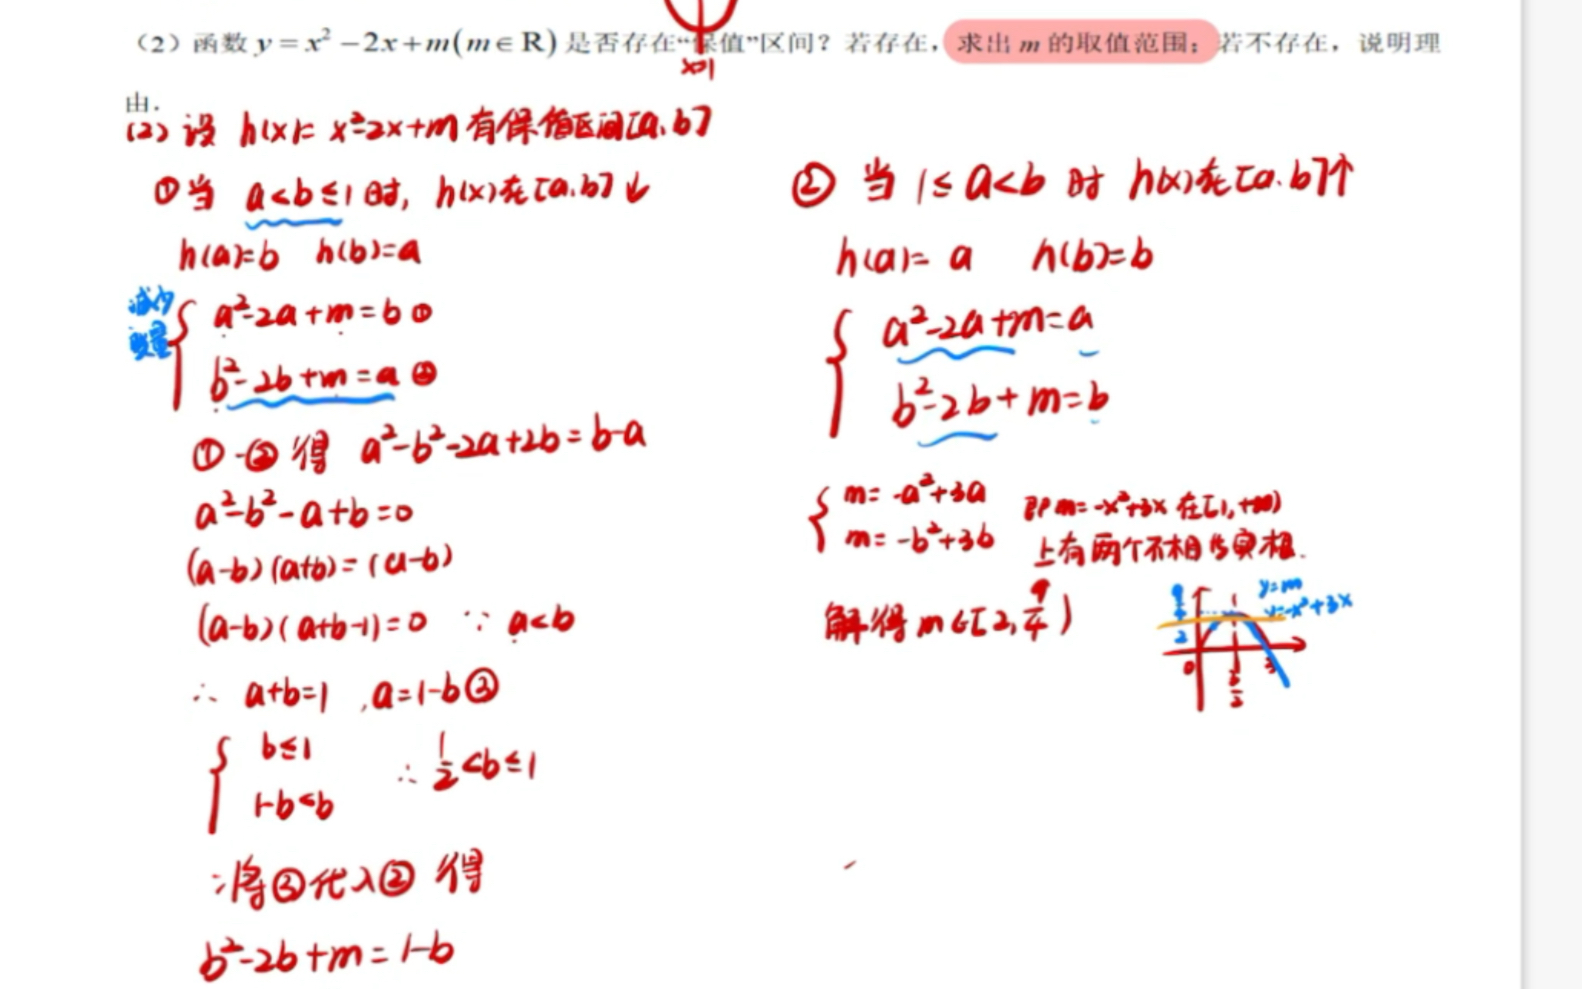 （2）函数 y = x² − 2x + m(m ∈ R) 是否存在“保值”区间？若存在，求出 m 的取值范围；若不存在，说明理
由.
x=1
(2) 设 h(x)= x²-2x+m 有保值区间[a,b]
① 当 a<b≤1 时, h(x)在[a,b]↓
h(a)=b h(b)=a
减少
变量
a²-2a+m=b ①
b²-2b+m=a ②
①-②得 a²-b²-2a+2b=b-a
a²-b²-a+b=0
(a-b)(a+b)=(a-b)
(a-b)(a+b-1)=0 ∵ a<b
∴ a+b=1 , a=1-b ③
b≤1
1-b<b
∴ 1/2<b≤1
∴将③代入② 得
b²-2b+m=1-b
② 当 1≤a<b 时 h(x)在[a,b]↑
h(a)=a h(b)=b
a²-2a+m=a
b²-2b+m=b
m=-a²+3a
m=-b²+3b
即 m=-x²+3x 在[1,+∞)
上有两个不相等实根.
解得 m∈[2,9/4)
y=m
y=-x²+3x
9/4
1
2
0
3
3/2